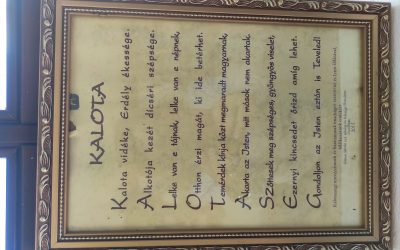 KALOTA
Kalota vidéke, Erdély ékessége.
Alkotója kezét dicséri szépsége.
Lelke van e tájnak, lelke van e népnek,
Otthon érzi magát, ki ide betérhet.
Tenérdek kínja közt megmaradt magyarnak,
Akarta az Isten, mit mások nem akartak.
Szőttesek meg szépséges, gyöngyös viselet,
Ezernyi kincsedet őrizd amíg lehet.
Gondoljon az Isten eztán is Teveled!